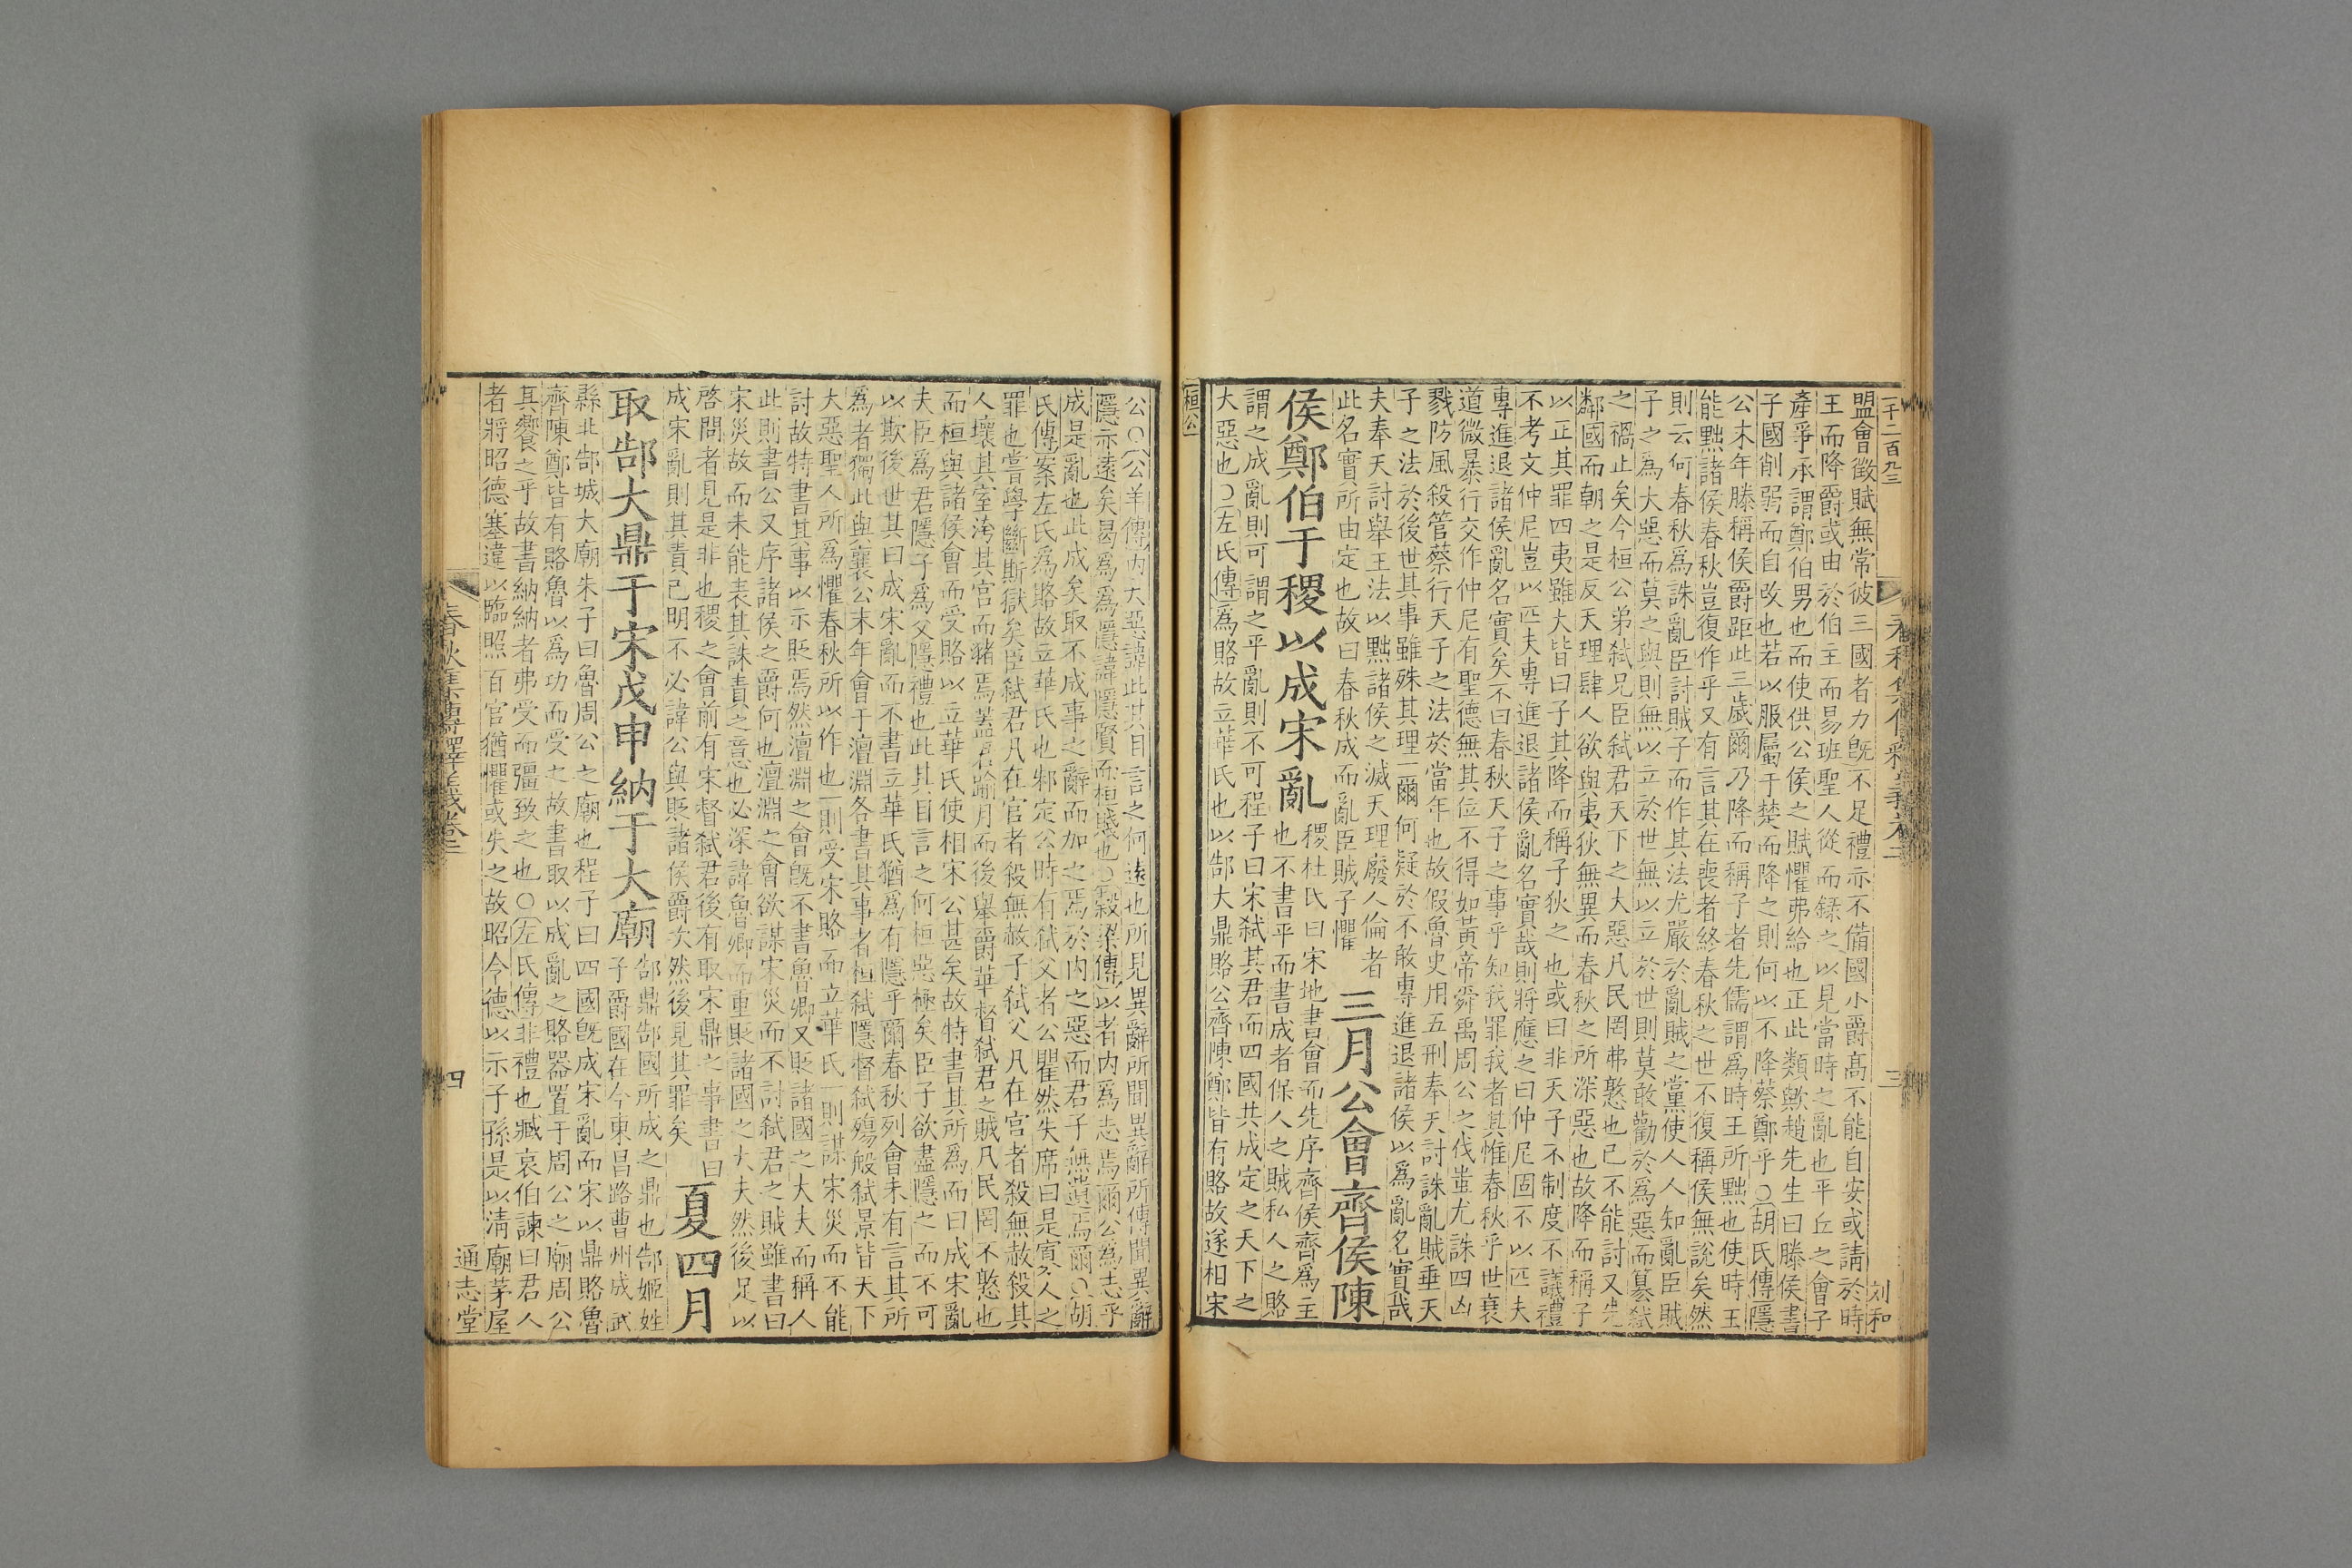 一千二百九三
刘和
三
盟會徵賦無常彼三國者力旣不足禮示不備國小爵高不能自安或請於時
王而降爵或由於伯主而易班聖人從而錄之以見當時之亂也平丘之會子
產爭承謂鄭伯男也而使供公侯之賦懼弗給也正此類歟趙先生曰滕侯書
子國削弱而自改也若以服屬于楚而降之則何以不降蔡鄭乎○胡氏傳隱
公末年滕稱侯爵距此三歲爾乃降而稱子者先儒謂爲時王所黜也使時王
能黜諸侯春秋豈復作乎又有言其在喪者終春秋之世不復稱侯無說矣然
則云何春秋爲誅亂臣討賊子而作其法尤嚴於亂賊之黨使人人知亂臣賊
子之爲大惡而莫之與則無以立於世無以立於世則莫敢勸於爲惡而篡弒
之禍止矣今桓公弟弒兄臣弒君天下之大惡凡民罔弗憝也已不能討又先
鄰國而朝之是反天理肆人欲與夷狄無異而春秋之所深惡也故降而稱子
以正其罪四夷雖大皆曰子其降而稱子狄之也或曰非天子不制度不議禮
不考文仲尼豈以匹夫專進退諸侯亂名實哉則將應之曰仲尼固不以匹夫
專進退諸侯亂名實矣不曰春秋天子之事乎知我罪我者其惟春秋乎世衰
道微暴行交作仲尼有聖德無其位不得如黃帝舜禹周公之伐蚩尤誅四凶
戮防風殺管蔡行天子之法於當年也故假魯史用五刑奉天討誅亂賊垂天
子之法於後世其事雖殊其理一爾何疑於不敢專進退諸侯以爲亂名實哉
夫奉天討舉王法以黜諸侯之滅天理廢人倫者
此名實所由定也故曰春秋成而亂臣賊子懼
三月公會齊侯陳
侯鄭伯于稷以成宋亂
稷杜氏曰宋地書會而先序齊侯齊爲主
也不書平而書成者保人之賊私人之賂
謂之成亂則可謂之平亂則不可程子曰宋弒其君而四國共成定之天下之
大惡也○左氏傳爲賂故立華氏也以郜大鼎賂公齊陳鄭皆有賂故遂相宋
桓公
公○公羊傳內大惡諱此其目言之何遠也所見異辭所聞異辭所傳聞異辭
隱亦遠矣曷爲爲隱諱隱賢而桓賤也○穀梁傳以者內爲志焉爾公爲志乎
成是亂也此成矣取不成事之辭而加之焉於內之惡而君子無遺焉爾○胡
氏傳案左氏爲賂故立華氏也邾定公時有弒父者公瞿然失席曰是寡人之
罪也嘗學斷斯獄矣臣弒君凡在官者殺無赦子弒父凡在宮者殺無赦殺其
人壞其室洿其宮而豬焉蓋君踰月而後舉爵華督弒君之賊凡民罔不憝也
而桓與諸侯會而受賂以立華氏使相宋公甚矣故特書其所爲而曰成宋亂
夫臣爲君隱子爲父隱禮也此其目言之何桓惡極矣臣子欲盡隱之而不可
以欺後世其曰成宋亂而不書立華氏猶爲有隱乎爾春秋列會未有言其所
爲者獨此與襄公末年會于澶淵各書其事者桓弒隱督弒殤般弒景皆天下
大惡聖人所爲懼春秋所以作也一則受宋賂而立華氏一則謀宋災而不能
討故特書其事以示貶焉然澶淵之會旣不書魯卿又貶諸國之大夫而稱人
此則書公又序諸侯之爵何也澶淵之會欲謀宋災而不討弒君之賊雖書曰
宋災故而未能表其誅責之意也必深諱魯卿而重貶諸國之大夫然後足以
啓問者見是非也稷之會前有宋督弒君後有取宋鼎之事書曰
成宋亂則其責已明不必諱公與貶諸侯爵次然後見其罪矣
夏四月
取郜大鼎于宋戊申納于大廟
郜鼎郜國所成之鼎也郜姬姓
子爵國在今東昌路曹州成武
縣北郜城大廟朱子曰魯周公之廟也程子曰四國旣成宋亂而宋以鼎賂魯
齊陳鄭皆有賂魯以爲功而受之故書取以成亂之賂器置于周公之廟周公
其饗之乎故書納納者弗受而彊致之也○左氏傳非禮也臧哀伯諫曰君人
者將昭德塞違以臨照百官猶懼或失之故昭令德以示子孫是以清廟茅屋
春秋集傳釋義卷二
四
通志堂